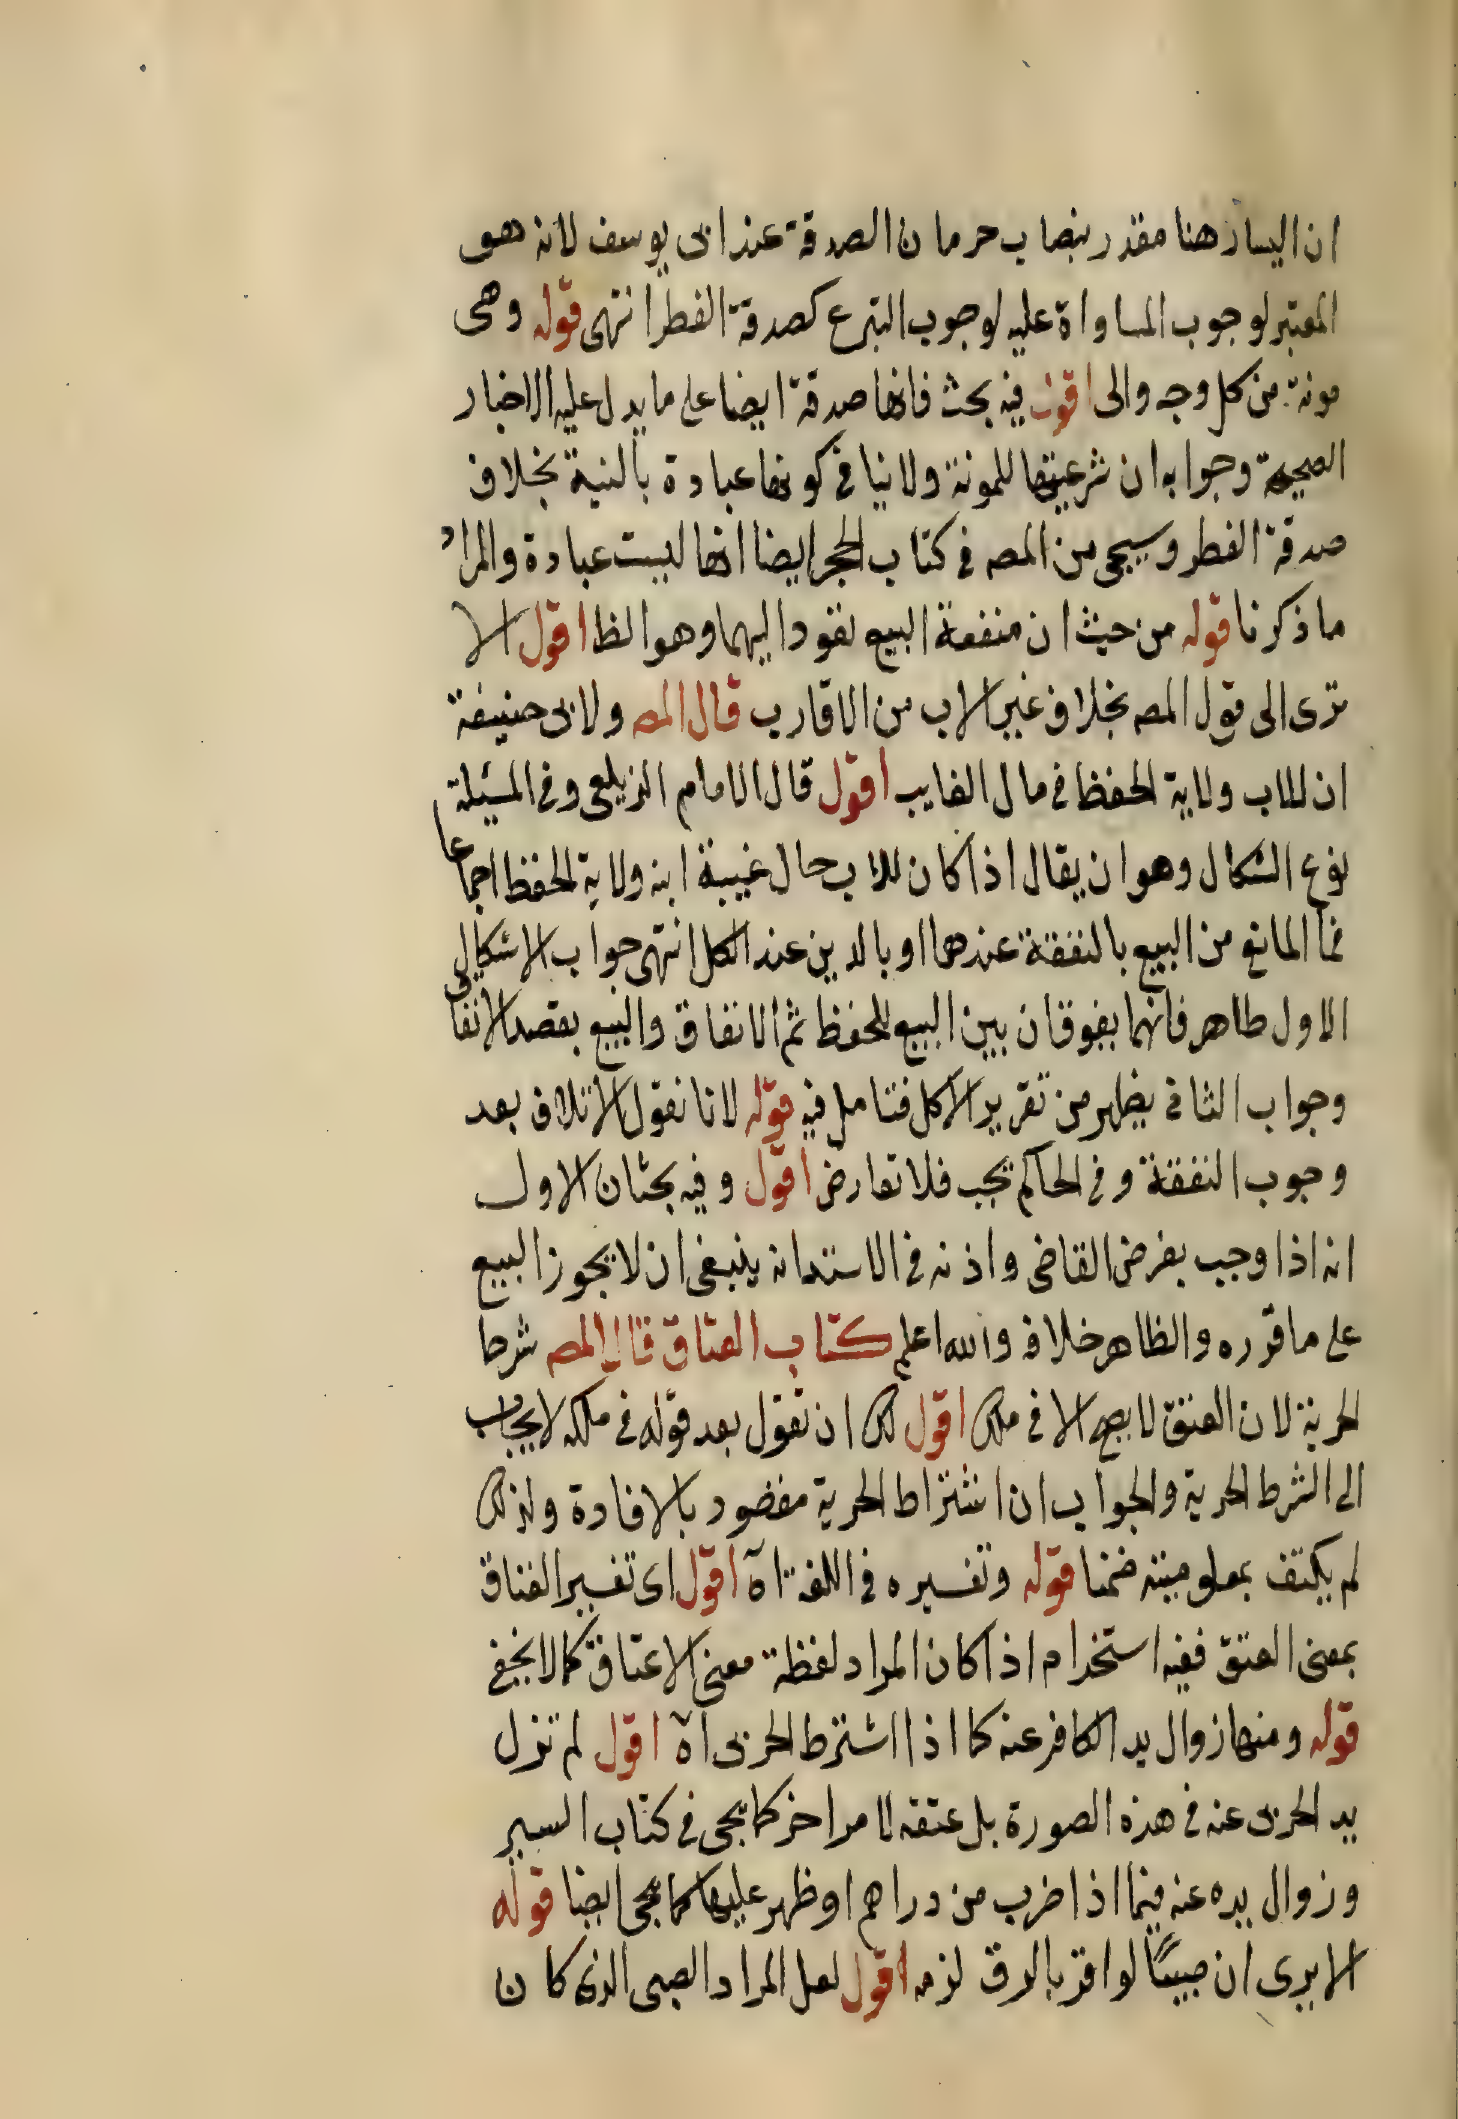 ان اليسار هنا مقدر بنصاب حرمان الصدقة عند ابى يوسف لانه هو
المعتبر لوجوب المساواة عليه لوجوب التبرع كصدقة الفطر انتهى قوله وهى
مونة من كل وجه والى اقول فيه بحث فانها صدقة ايضا على ما يدل عليه الاخبار
الصحيحة وجوابه ان شرعيتها للمونة ولا ينافى كونها عبادة بالنية بخلاف
صدقة الفطر وسيجى من المصه فى كتاب الحجر ايضا انها ليست عبادة والمراد
ما ذكرنا قوله من حيث ان منفعة البيع تعود اليهما وهو الظا اقول الا
ترى الى قول المصه بخلاف غير الاب من الاقارب قال المصه ولابى حنيفة
ان للاب ولاية الحفظ فى مال الغايب اقول قال الامام الزيلعى وفى المسئلة
نوع اشكال وهو ان يقال اذا كان للاب حال غيبة ابنه ولاية الحفظ اجماعا
فما المانع من البيع بالنفقة عندهما او بالدين عند الكل انتهى جواب الاشكال
الاول ظاهر فانهما يفرقان بين البيع للحفظ ثم الانفاق والبيع بقصد الانفاق
وجواب الثانى يظهر من تقرير الاكل فتامل فيه قوله لانا نقول الاتلاف بعد
وجوب النفقة وفى الحاكم تجب فلا تعارض اقول وفيه بحثان الاول
انه اذا وجب بفرض القاضى واذنه فى الاستدانه ينبغى ان لا يجوز البيع
على ما قرره والظاهر خلافه والله اعلم كتاب العتاق قال المصه شرط
الحرية لان العتق لا يصح الا فى ملك اقول لك ان تقول بعد قوله فى ملكه لا يحتاج
الى الشرط الحرية والجواب ان اشتراط الحرية مقصود بالافادة ولذلك
لم يكتف بمعلوميته ضمنا قوله وتفسيره فى اللغة اه اقول اى تفسير العتاق
بمعنى العتق ففيه استخدام اذا كان المراد لفظة معنى الاعتاق كما لا يخفى
قوله ومنها زوال يد الكافر عنه كما اذا اشترط الحربى اه اقول لم تزل
يد الحربى عنه فى هذه الصورة بل عتقه لامر اخر كما يجى فى كتاب السير
وزوال يده عنه فيما اذا ضرب من دراهم او ظهر عليها كما يجى ايضا قوله
الا يرى ان صبيا لو اقر بالرق لزمه اقول لعل المراد الصبى الذى كان